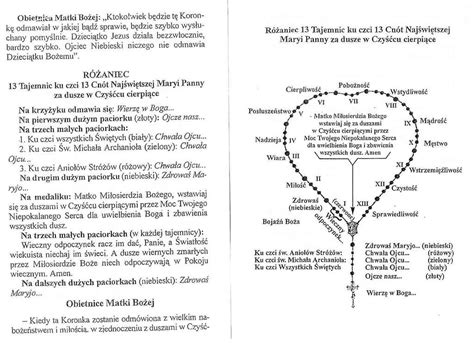 Obietnica Matki Bożej: „Ktokolwiek będzie tę Koron-
kę odmawiał w jakiej bądź sprawie, będzie szybko wysłu-
chany pomyślnie. Dzieciątko Jezus działa bezzwłocznie,
bardzo szybko. Ojciec Niebieski niczego nie odmawia
Dzieciątku Bożemu”.
RÓŻANIEC
13 Tajemnic ku czci 13 Cnót Najświętszej Maryi Panny
za dusze w Czyśćcu cierpiące
Na krzyżyku odmawia się: Wierzę w Boga...
Na pierwszym dużym paciorku (złoty): Ojcze nasz...
Na trzech małych paciorkach:
1. Ku czci wszystkich Świętych (biały): Chwała Ojcu...
2. Ku czci św. Michała Archanioła (zielony): Chwała
Ojcu...
3. Ku czci Aniołów Stróżów (różowy): Chwała Ojcu...
Na drugim dużym paciorku (niebieski): Zdrowaś Ma-
ryjo...
Na medaliku: Matko Miłosierdzia Bożego, wstawiaj
się za duszami w Czyśćcu cierpiącymi przez Moc Twojego
Niepokalanego Serca dla uwielbienia Boga i zbawienia
wszystkich dusz.
Na trzech małych paciorkach (w każdej tajemnicy):
Wieczny odpoczynek racz im dać, Panie, a Światłość
wiekuista niechaj im świeci. A dusze wiernych zmarłych
przez Miłosierdzie Boże niech odpoczywają w Pokoju
wiecznym. Amen.
Na dalszych dużych paciorkach (niebieski): Zdrowaś
Maryjo...
Obietnice Matki Bożej
– Kiedy ta Koronka zostanie odmówiona z wielkim na-
bożeństwem i miłością, w zjednoczeniu z duszami w Czyść-
Różaniec 13 Tajemnic ku czci 13 Cnót Najświętszej
Maryi Panny za dusze w Czyśćcu cierpiące
Cierpliwość
Pobożność
Posłuszeństwo
Wstydliwość
Nadzieja
Mądrość
Wiara
Wstrzemięźliwość
Miłość
Męstwo
Bojaźń Boża
Czystość
Sprawiedliwość
VI
VII
VIII
V
IX
IV
X
III
XI
II
XII
I
XIII
- Matko Miłosierdzia Bożego
wstawiaj się za duszami
w Czyśćcu cierpiącymi przez
Moc Twojego Niepokalanego Serca
dla uwielbienia Boga i zbawienia
wszystkich dusz. Amen
Zdrowaś
(niebieski)
(czerwony)
Wieczny
odpoczynek...
Zdrowaś Maryjo... (niebieski)
Ku czci św. Aniołów Stróżów: Chwała Ojcu... (różowy)
Ku czci św. Michała Archanioła: Chwała Ojcu... (zielony)
Ku czci Wszystkich Świętych: Chwała Ojcu... (biały)
Ojcze nasz... (złoty)
Wierzę w Boga...